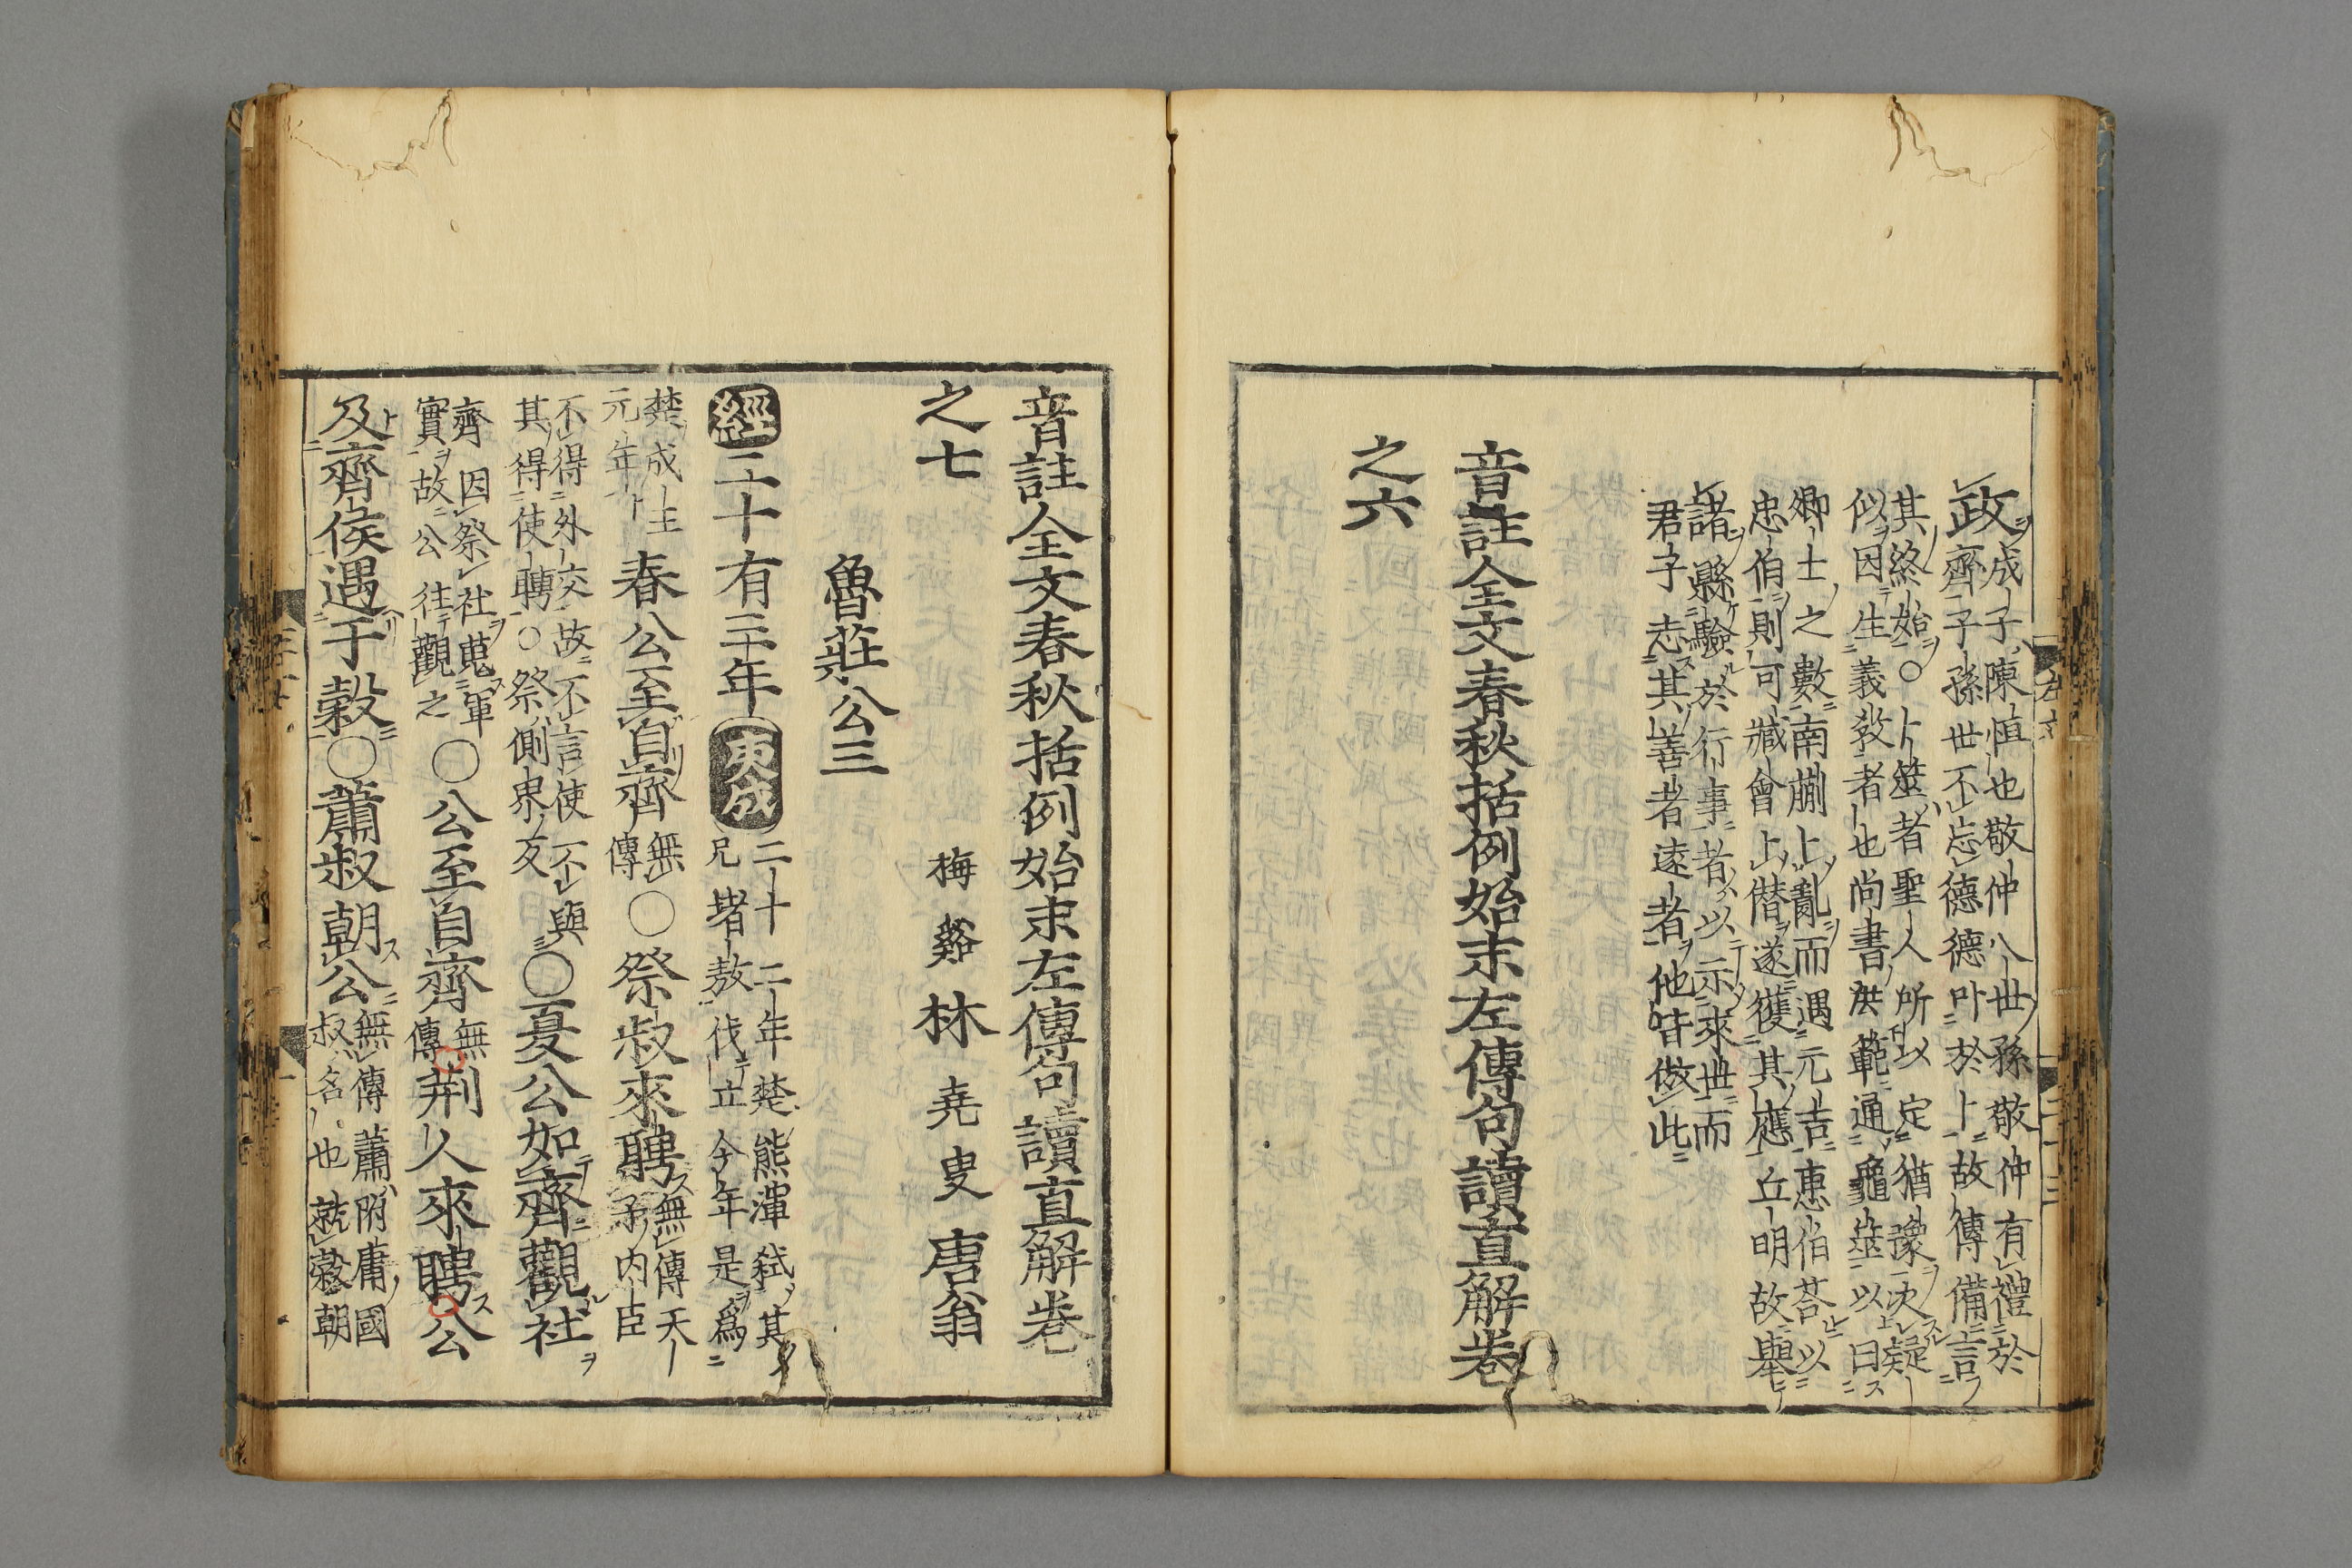 政
成子陳恒也敬仲八世孫敬仲有禮於
齊子孫世不忘德德叶於卜故傳備言
其終始○卜筮者聖人所以定猶豫决疑
似因生義敎者也尚書洪範通龜筮以曰
卿士之數南蒯上亂而遇元吉惠伯荅以
忠伯則可臧會上僣遂獲其應丘明故擧
諸縣驗於行事者以示來世而
君子志其善者遠者他皆倣此
音註全文春秋括例始末左傳句讀直解卷
之六
音註全文春秋括例始末左傳句讀直解卷
之七
梅谿林堯叟唐翁
魯莊公三
經二十有三年
二十二年楚熊渾弑其
兄堵敖伐立今年是爲
楚成王
元年
春公至自齊
無
傳
○祭叔來聘
無傳天
子内臣
不得外交故不言使不與
其得使聘○祭側界反
○夏公如齊觀社
齊因祭社蒐軍
實故公往觀之
○公至自齊
無
傳
荆人來聘公
及齊侯遇于穀○蕭叔朝公
無傳蕭附庸國
叔名也就穀朝